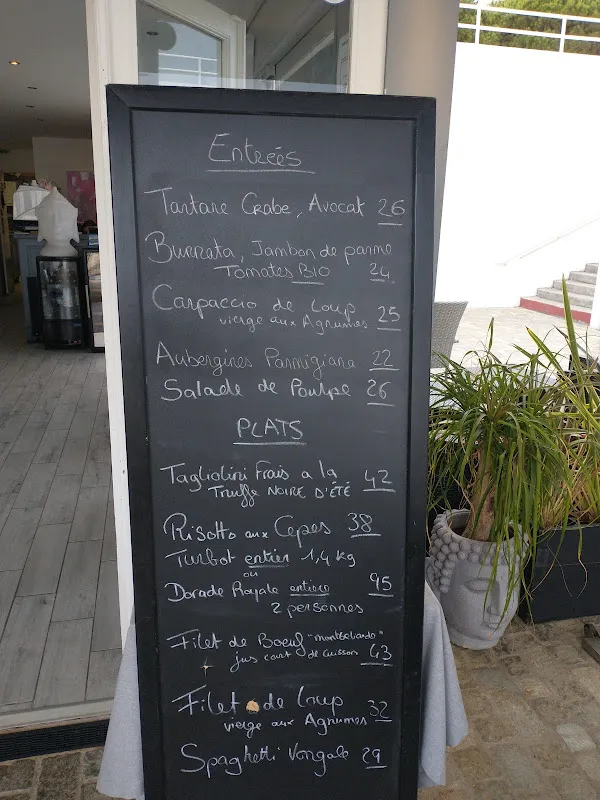 Entrées
Tartare Crabe, Avocat 26
Burrata, Jambon de parme
Tomates BIO 24
Carpaccio de Loup
vierge aux Agrumes 25
Aubergines Parmigiana 22
Salade de Poulpe 26
PLATS
Tagliolini Frais a la
Truffe NOIRE D'ÉTÉ 42
Risotto aux Cepes 38
Turbot entier 1,4 kg
ou
Dorade Royale entière 95
2 personnes
Filet de Boeuf "montbeliarde"
jus court de cuisson 43
Filet de Loup
vierge aux Agrumes 32
Spaghetti Vongole 29